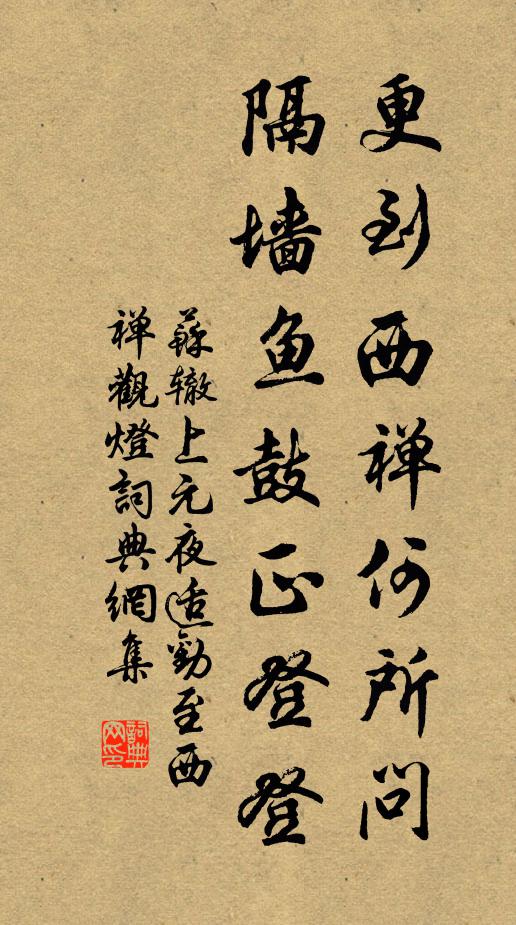 更到西禅何所问
隔墙鱼鼓正登登
蘇辙上元夜适勸至西
禅觀燈詞典網集
詞典
网印